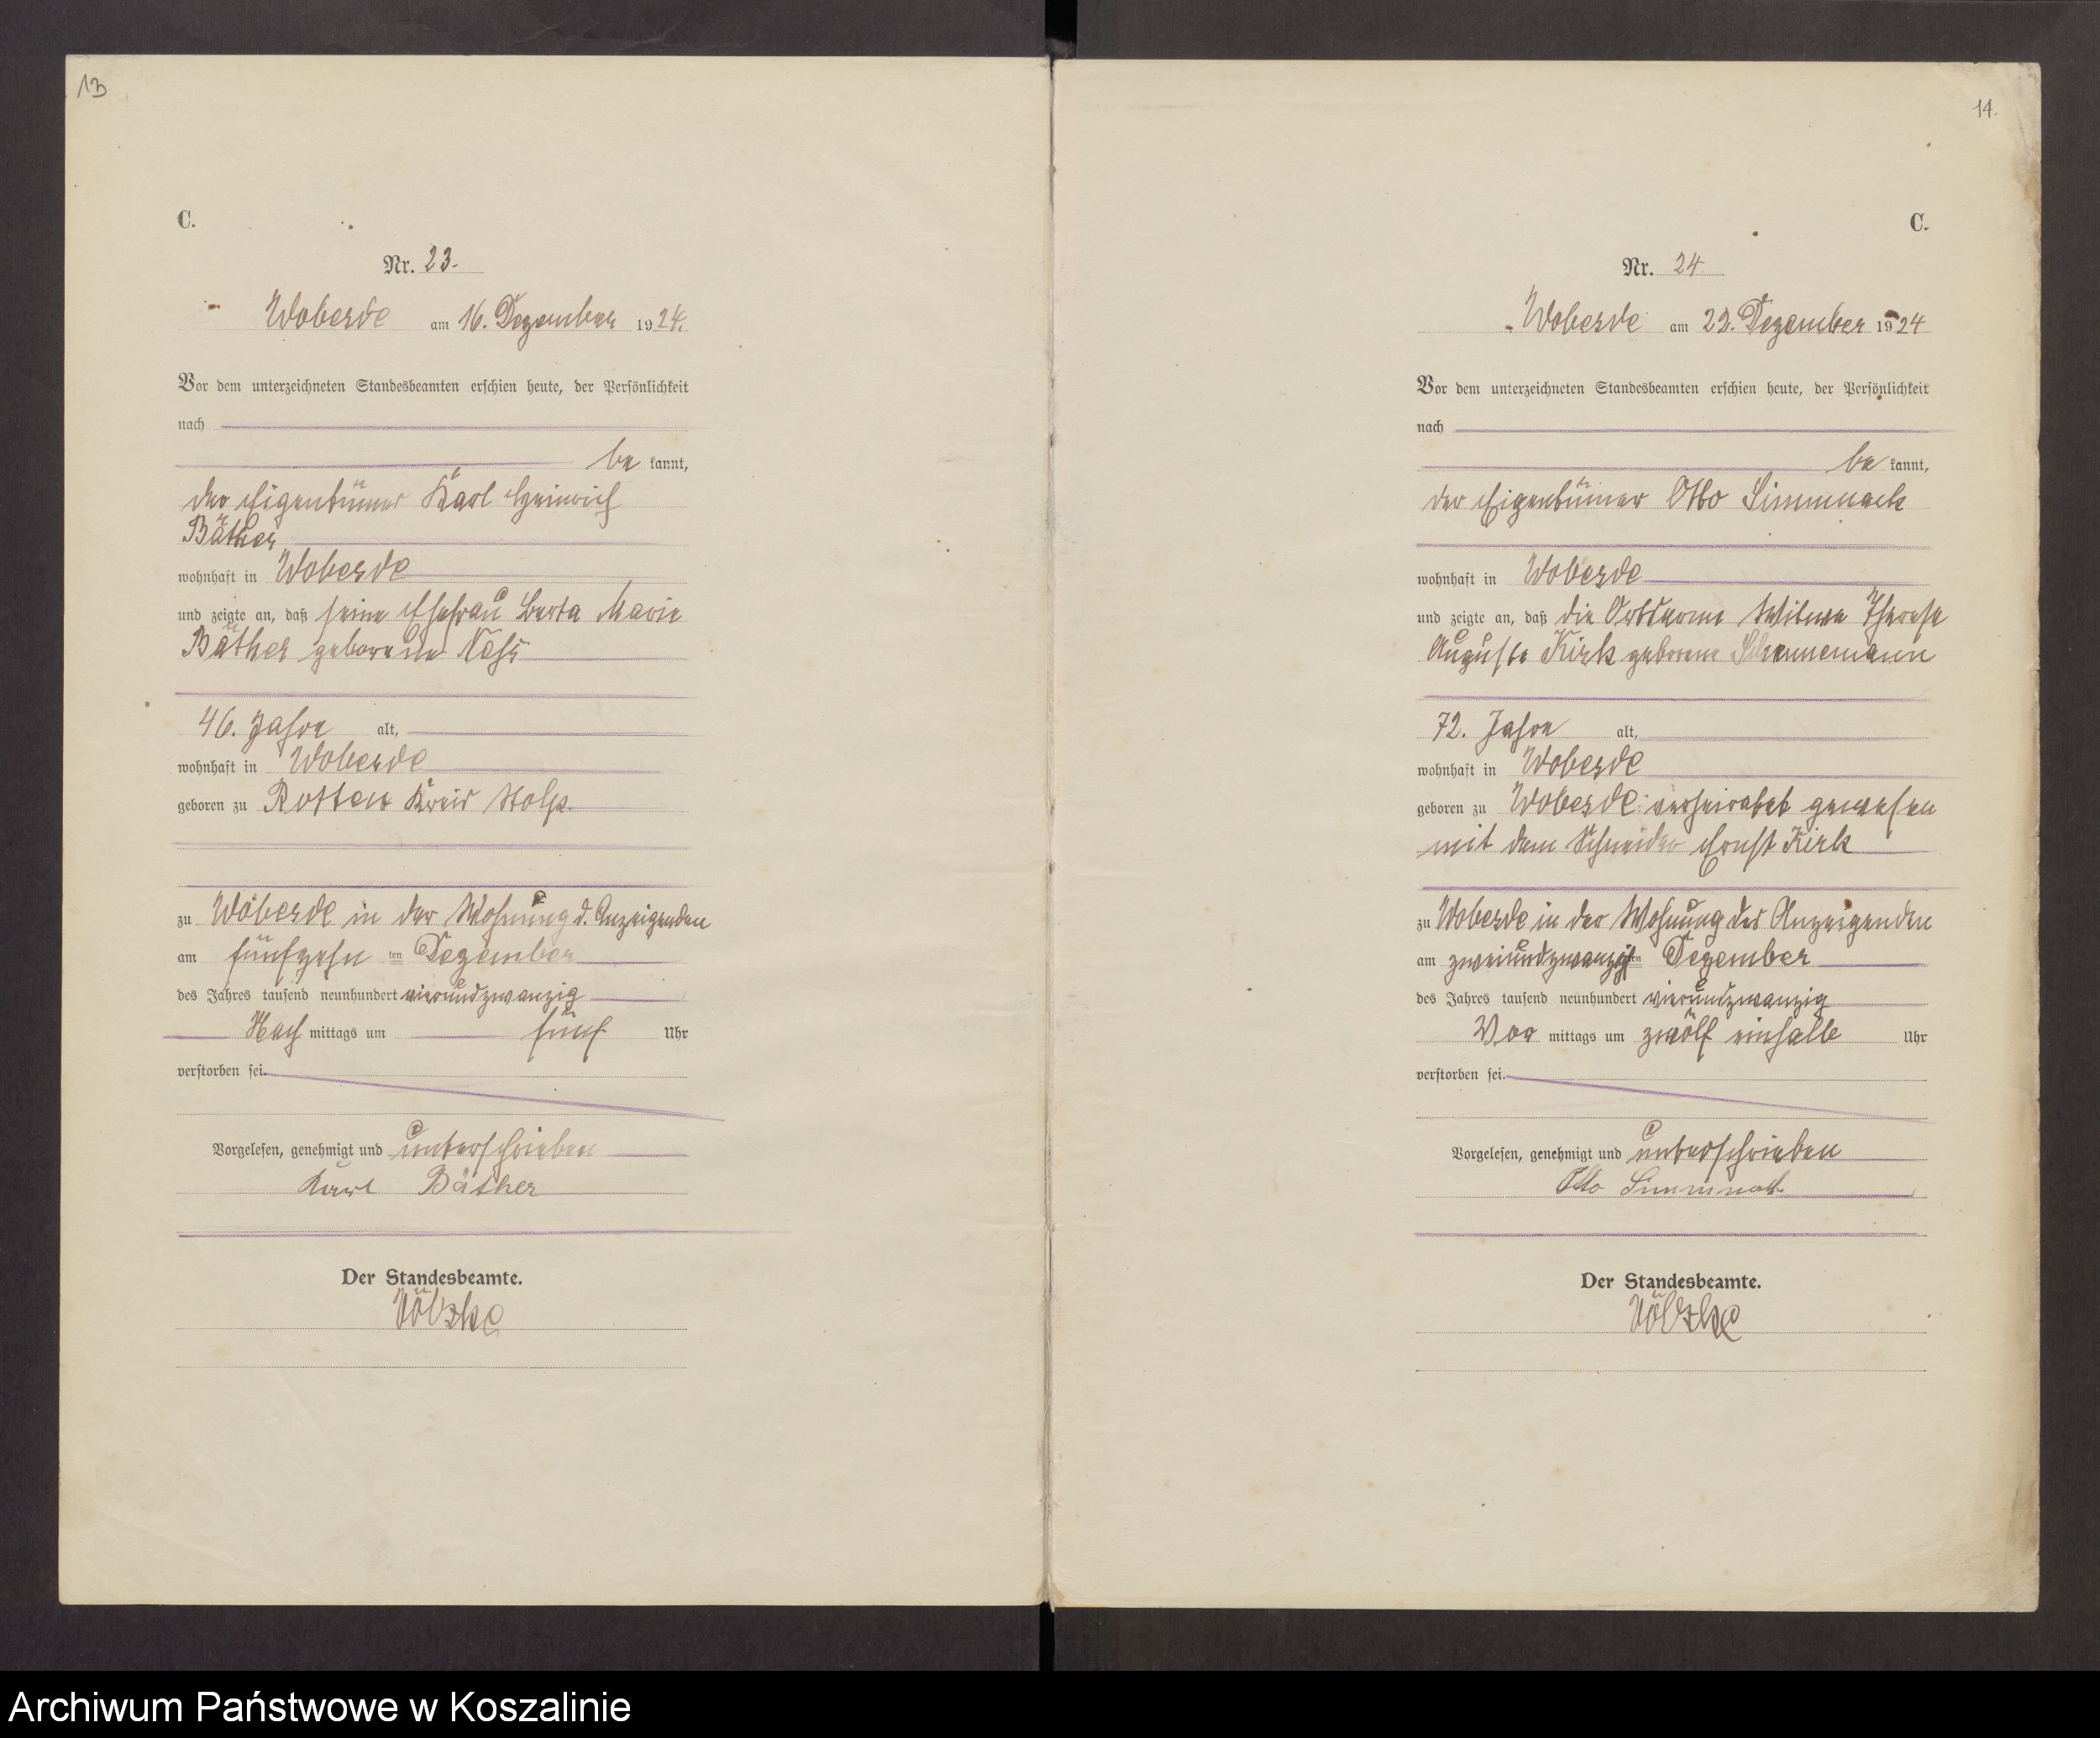 13
C.
Nr. 23.
Woberde am 16. Dezember 1924.
Vor dem unterzeichneten Standesbeamten erschien heute, der Persönlichkeit
nach
be kannt,
der Eigentümer Karl Heinrich
Bäther
wohnhaft in Woberde
und zeigte an, daß seine Ehefrau Berta Marie
Bäther geborene
46. Jahre alt,
wohnhaft in Woberde
geboren zu Rotten Kreis Stolp.
zu Woberde in der Wohnung d. Anzeigenden
am fünfzehn ten Dezember
des Jahres tausend neunhundert vierundzwanzig
Nach mittags um fünf Uhr
verstorben sei.
Vorgelesen, genehmigt und unterschrieben
Karl Bäther
Der Standesbeamte.
Völzke
14.
C.
Nr. 24.
Woberde am Dezember 1924
Vor dem unterzeichneten Standesbeamten erschien heute, der Persönlichkeit
nach
be kannt,
der Eigentümer Otto Simmnack
wohnhaft in Woberde
und zeigte an, daß die Ortsarme Witwe Therese
Auguste Kirk geborene
72. Jahre alt,
wohnhaft in Woberde
geboren zu Woberde: verheiratet gewesen
mit dem Schneider Ernst Kirk
zu Woberde in der Wohnung des Anzeigenden
am zweiundzwanzigsten Dezember
des Jahres tausend neunhundert vierundzwanzig
Vor mittags um zwölf einhalb Uhr
verstorben sei.
Vorgelesen, genehmigt und unterschrieben
Otto Simmnack
Der Standesbeamte.
Völzke
Archiwum Państwowe w Koszalinie